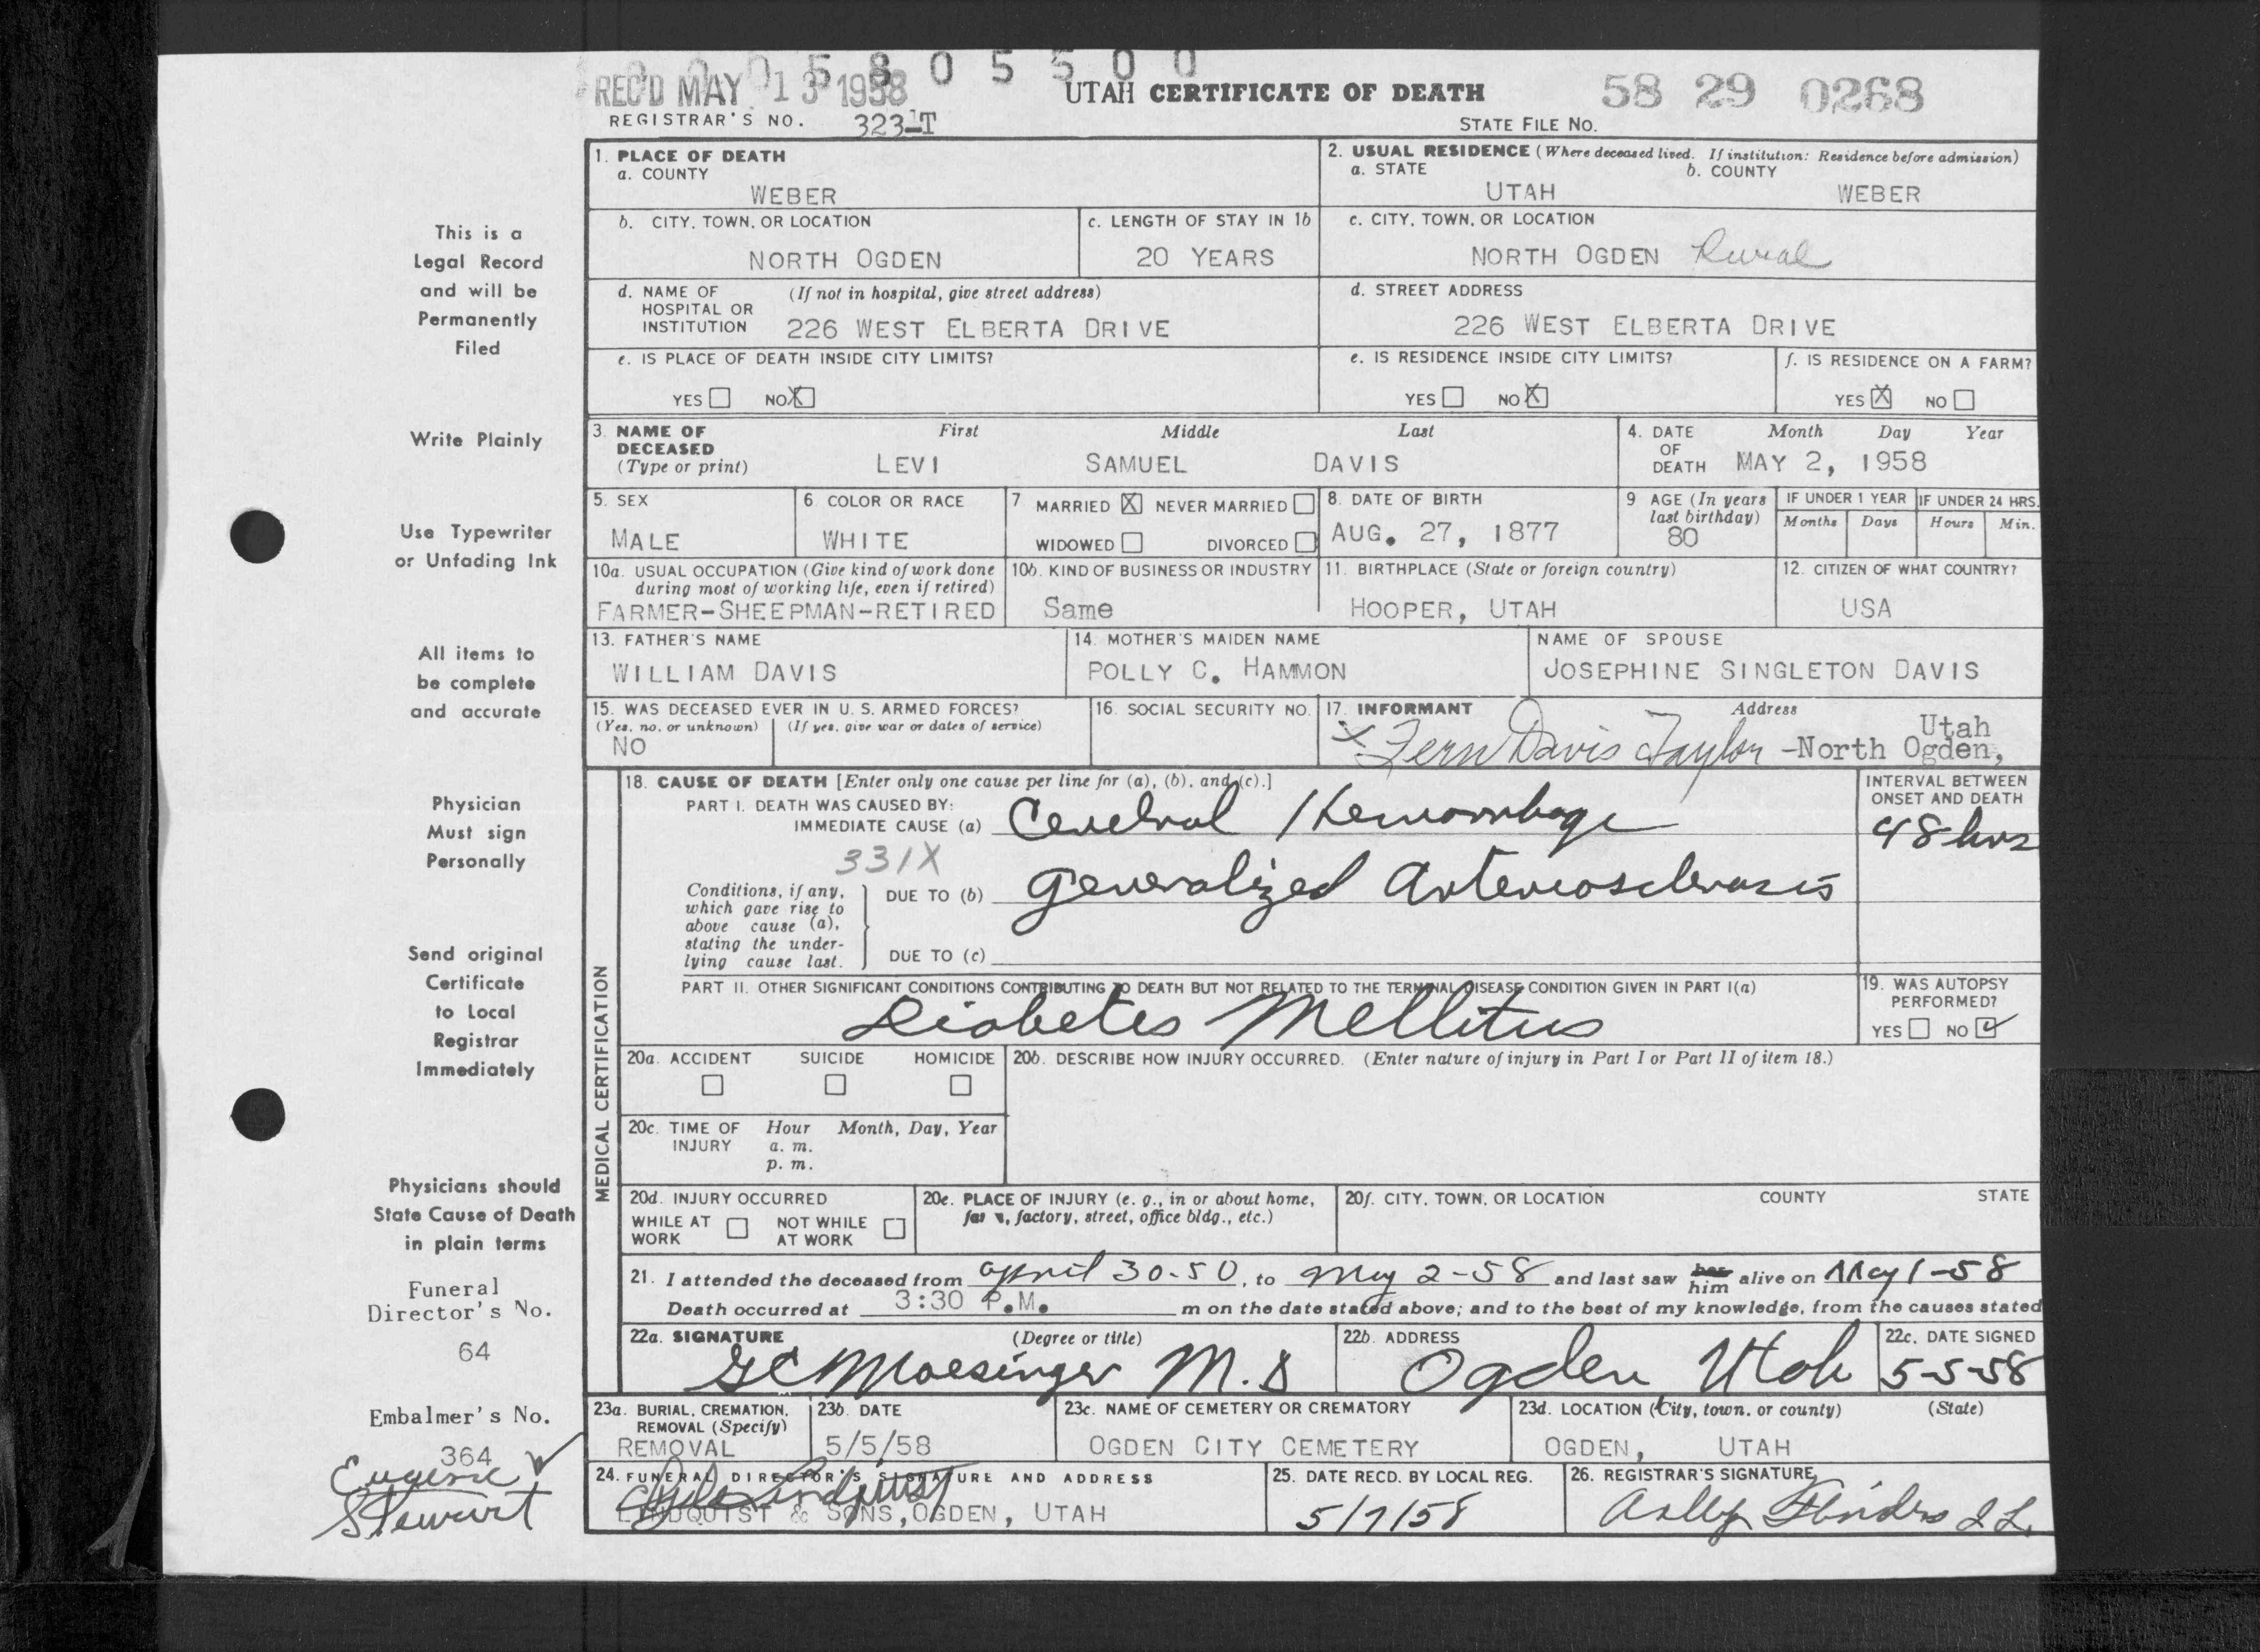 0 0 0 5 8 0 5 5 0 0
REC'D MAY 13 1958
UTAH CERTIFICATE OF DEATH
58 29 0268
REGISTRAR'S NO. 323-T
STATE FILE NO.
1. PLACE OF DEATH
a. COUNTY
WEBER
2. USUAL RESIDENCE (Where deceased lived. If institution: Residence before admission)
a. STATE b. COUNTY
UTAH WEBER
b. CITY, TOWN, OR LOCATION
NORTH OGDEN
c. LENGTH OF STAY IN 1b
20 YEARS
c. CITY, TOWN, OR LOCATION
NORTH OGDEN Rural
d. NAME OF (If not in hospital, give street address)
HOSPITAL OR
INSTITUTION 226 WEST ELBERTA DRIVE
d. STREET ADDRESS
226 WEST ELBERTA DRIVE
e. IS PLACE OF DEATH INSIDE CITY LIMITS?
YES NO X
e. IS RESIDENCE INSIDE CITY LIMITS?
YES NO X
f. IS RESIDENCE ON A FARM?
YES X NO
3. NAME OF First Middle Last
DECEASED
(Type or print) LEVI SAMUEL DAVIS
4. DATE Month Day Year
OF
DEATH MAY 2, 1958
5. SEX
MALE
6 COLOR OR RACE
WHITE
7 MARRIED X NEVER MARRIED
WIDOWED DIVORCED
8. DATE OF BIRTH
AUG. 27, 1877
9 AGE (In years
last birthday)
80
IF UNDER 1 YEAR IF UNDER 24 HRS.
Months Days Hours Min.
10a. USUAL OCCUPATION (Give kind of work done
during most of working life, even if retired)
FARMER-SHEEPMAN-RETIRED
10b. KIND OF BUSINESS OR INDUSTRY
Same
11. BIRTHPLACE (State or foreign country)
HOOPER, UTAH
12. CITIZEN OF WHAT COUNTRY?
USA
13. FATHER'S NAME
WILLIAM DAVIS
14. MOTHER'S MAIDEN NAME
POLLY C. HAMMON
NAME OF SPOUSE
JOSEPHINE SINGLETON DAVIS
15. WAS DECEASED EVER IN U. S. ARMED FORCES?
(Yes, no, or unknown) (If yes, give war or dates of service)
NO
16. SOCIAL SECURITY NO.
17. INFORMANT Address
X Fern Davis Taylor -North Ogden,
Utah
MEDICAL CERTIFICATION
18. CAUSE OF DEATH [Enter only one cause per line for (a), (b), and (c).]
PART I. DEATH WAS CAUSED BY:
IMMEDIATE CAUSE (a) Cerebral Hemorrhage
INTERVAL BETWEEN
ONSET AND DEATH
48 hrs
331X
Conditions, if any,
which gave rise to
above cause (a),
stating the under-
lying cause last.
DUE TO (b) Generalized Arteriosclerosis
DUE TO (c)
PART II. OTHER SIGNIFICANT CONDITIONS CONTRIBUTING TO DEATH BUT NOT RELATED TO THE TERMINAL DISEASE CONDITION GIVEN IN PART I(a)
Diabetes Mellitus
19. WAS AUTOPSY
PERFORMED?
YES NO ✓
20a. ACCIDENT SUICIDE HOMICIDE
20b. DESCRIBE HOW INJURY OCCURRED. (Enter nature of injury in Part I or Part II of item 18.)
20c. TIME OF Hour Month, Day, Year
INJURY a. m.
p. m.
20d. INJURY OCCURRED
WHILE AT NOT WHILE
WORK AT WORK
20e. PLACE OF INJURY (e. g., in or about home,
farm, factory, street, office bldg., etc.)
20f. CITY, TOWN, OR LOCATION COUNTY STATE
21. I attended the deceased from April 30-50, to May 2-58 and last saw her him alive on May 1-58
Death occurred at 3:30 P.M. m on the date stated above; and to the best of my knowledge, from the causes stated
22a. SIGNATURE (Degree or title)
Moesinger M.D
22b. ADDRESS
Ogden Utah
22c. DATE SIGNED
5-5-58
23a. BURIAL, CREMATION,
REMOVAL (Specify)
REMOVAL
23b. DATE
5/5/58
23c. NAME OF CEMETERY OR CREMATORY
OGDEN CITY CEMETERY
23d. LOCATION (City, town, or county) (State)
OGDEN, UTAH
24. FUNERAL DIRECTOR'S SIGNATURE AND ADDRESS
Lindquist
LINDQUIST & SONS, OGDEN, UTAH
25. DATE RECD. BY LOCAL REG.
5/7/58
26. REGISTRAR'S SIGNATURE
This is a
Legal Record
and will be
Permanently
Filed
Write Plainly
Use Typewriter
or Unfading Ink
All items to
be complete
and accurate
Physician
Must sign
Personally
Send original
Certificate
to Local
Registrar
Immediately
Physicians should
State Cause of Death
in plain terms
Funeral
Director's No.
64
Embalmer's No.
364
Eugene
Stewart